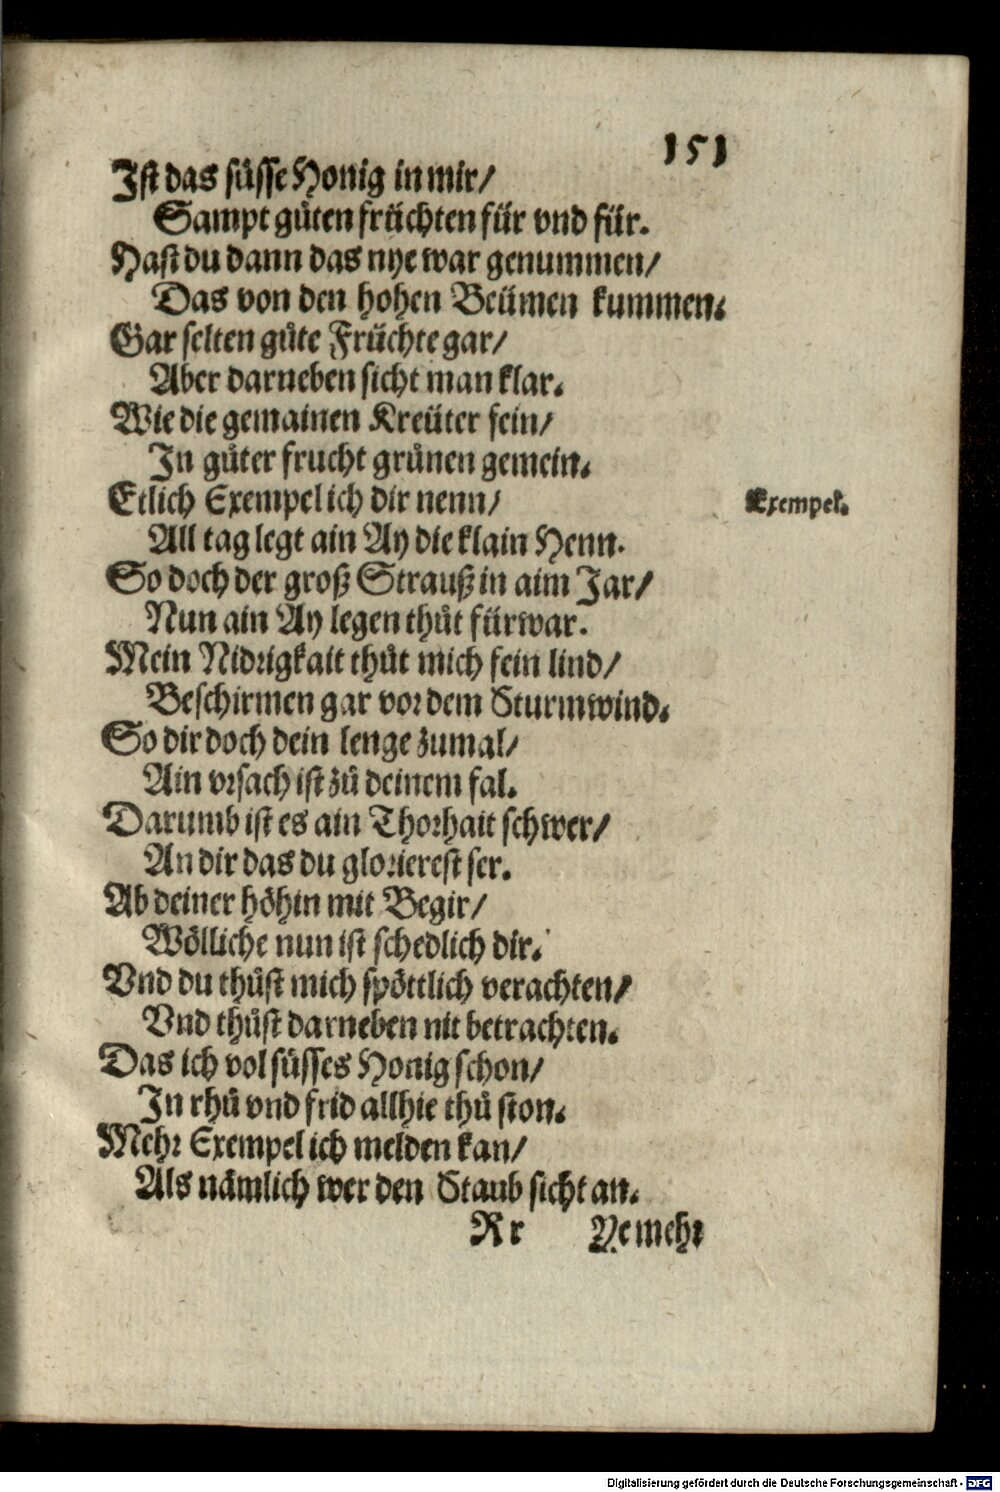 151
Ist das süsse Honig in mir/
Sampt gůten früchten für vnd für.
Hast du dann das nye war genummen/
Das von den hohen Beümen kummen.
Gar selten gůte Früchte gar/
Aber darneben sicht man klar.
Wie die gemainen Kreüter fein/
In gůter frucht grůnen gemein.
Etlich Exempel ich dir nenn/
Exempel.
All tag legt ain Ay die klain Henn.
So doch der groß Strauß in aim Jar/
Nun ain Ay legen thůt fürwar.
Mein Nidrigkait thůt mich fein lind/
Beschirmen gar vor dem Sturmwind.
So dir doch dein lenge zumal/
Ain vrsach ist zů deinem fal.
Darumb ist es ain Thorhait schwer/
An dir das du glorierest ser.
Ab deiner höhin mit Begir/
Wölliche nun ist schedlich dir.
Vnd du thůst mich spöttlich verachten/
Vnd thůst darneben nit betrachten.
Das ich vol süsses Honig schon/
In rhů vnd frid allhie thů ston.
Mehr Exempel ich melden kan/
Als nämlich wer den Staub sicht an.
Rr Ye mehr
Digitalisierung gefördert durch die Deutsche Forschungsgemeinschaft - DFG